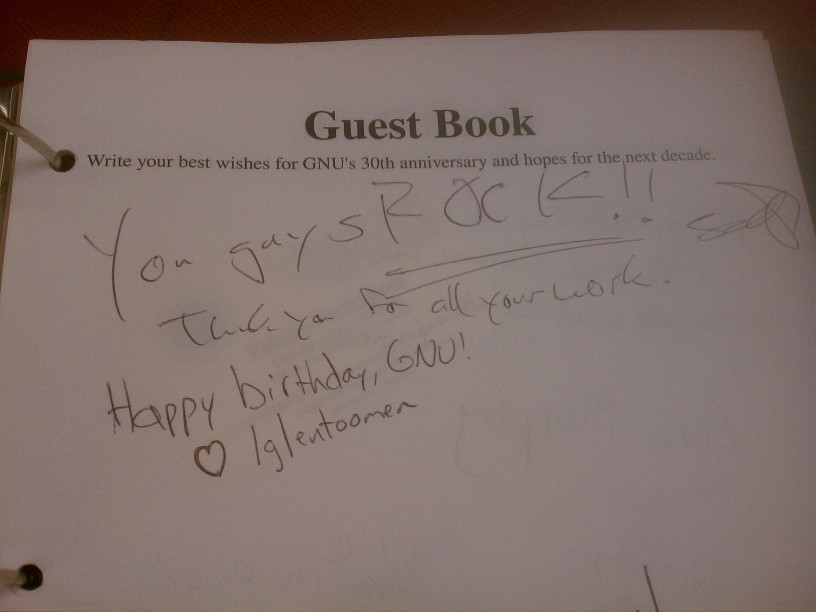 Guest Book
Write your best wishes for GNU's 30th anniversary and hopes for the next decade.
You guys ROCK!!
Thank you for all your work.
Happy birthday, GNU!
♡ lglentoomen